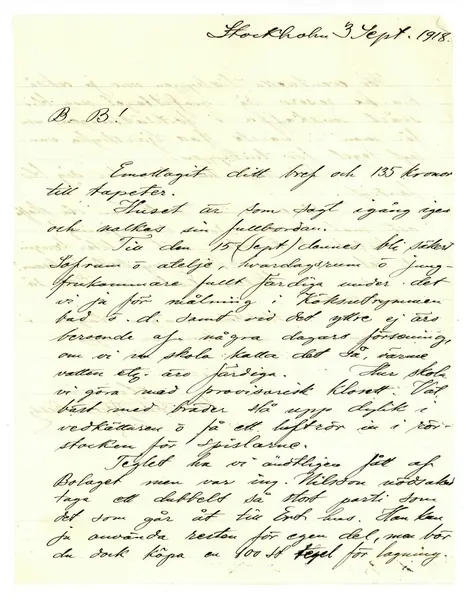 Stockholm 3 Sept. 1918.
B. B!
Emottagit ditt bref och 135 kronor
till tapeter.
Huset är som sagt igång igen
och nalkas sin fullbordan.
Till den 15 (Sept) dannes bli
Sofrum o ateljé, hvardagsrum o jung-
frukammare fullt färdiga under det
vi ja för målning i Köksutrymmen
bad o. d. samt vid det yttre ej äro
beroende af några dagars försening,
om vi nu skola kalla det så, värme
vatten etc. äro färdiga. Hur skola
vi göra med provisorisk klosett. Väl
bäst med bräder slå upp dylik i
vedkällaren o få ett luftrör in i rör-
stocken för spislarne.
Teglet ha vi ändtligen fått af
Bolaget men var ing. Nilsson nödsakad
taga ett dubbelt så stort parti som
det som går åt till Ert hus. Han kan
ju använda resten för egen del, men bör
du dock köpa en 100 st tegel för lagning.